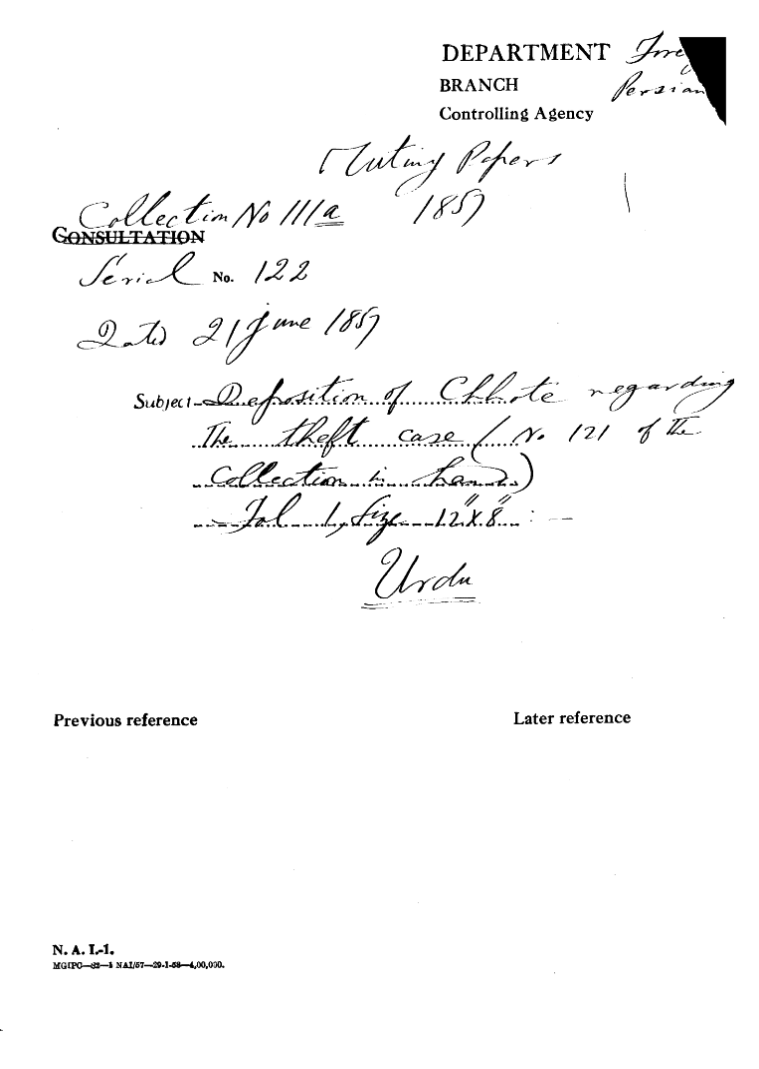 DEPARTMENT
BRANCH Persian
Controlling Agency
Mutiny Papers
Collection No 111a 1857
CONSULTATION
Serial No. 122
Dated 21 June 1857
Subject - Deposition of Chhote regarding
The theft case (No 121 of the
Collection in hand.)
Fol 1, Size 12"X8" : —
Urdu
Previous reference
Later reference
N. A. I.-1.
MGIPC—82—5 NAI/57—29-1-58—4,00,000.